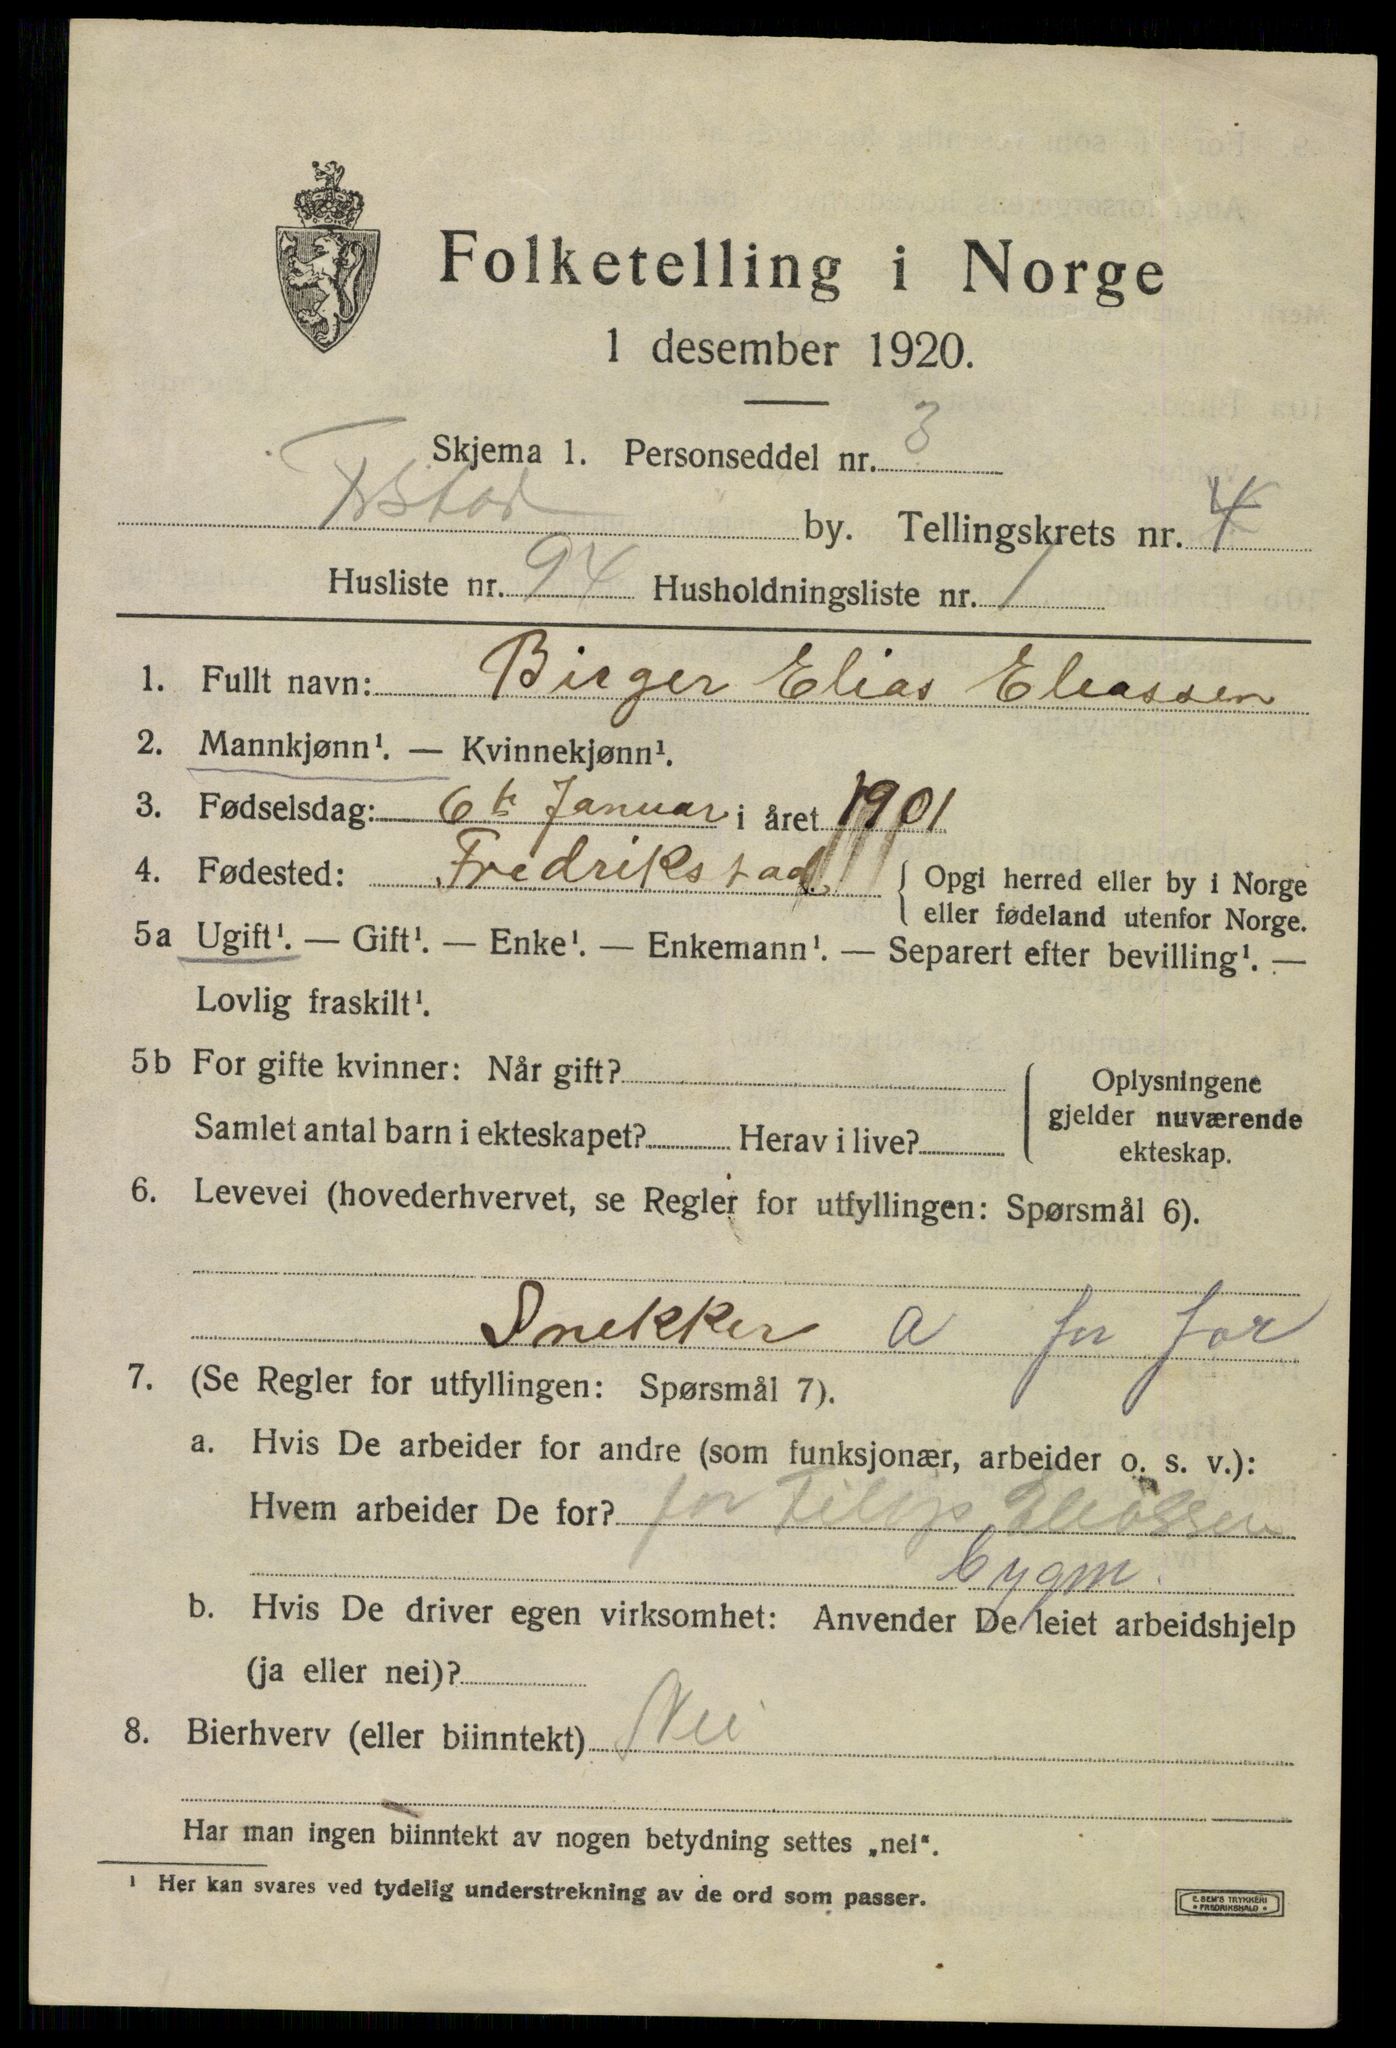 Folketelling i Norge
1 desember 1920.
Skjema 1. Personseddel nr. 3
Frstad by. Tellingskrets nr. 4
Husliste nr. 94 Husholdningsliste nr. 1
1. Fullt navn: Birger Elias Eleassen
2. Mannkjønn¹. — Kvinnekjønn¹.
3. Fødselsdag: 6te Januar i året 1901
4. Fødested: Fredrikstad. Opgi herred eller by i Norge
eller fødeland utenfor Norge.
5a Ugift¹. — Gift¹. — Enke¹. — Enkemann¹. — Separert efter bevilling¹. —
Lovlig fraskilt¹.
5b For gifte kvinner: Når gift? Oplysningene
gjelder nuværende
Samlet antal barn i ekteskapet? Herav i live? ekteskap.
6. Levevei (hovederhvervet, se Regler for utfyllingen: Spørsmål 6).
Snekker a for far
7. (Se Regler for utfyllingen: Spørsmål 7).
a. Hvis De arbeider for andre (som funksjonær, arbeider o. s. v.):
Hvem arbeider De for? for Filip Eleassen
bygm.
b. Hvis De driver egen virksomhet: Anvender De leiet arbeidshjelp
(ja eller nei)?
8. Bierhverv (eller biinntekt) Nei
Har man ingen biinntekt av nogen betydning settes „nei“.
¹ Her kan svares ved tydelig understrekning av de ord som passer.
E. SEM'S TRYKKERI
FREDRIKSHALD